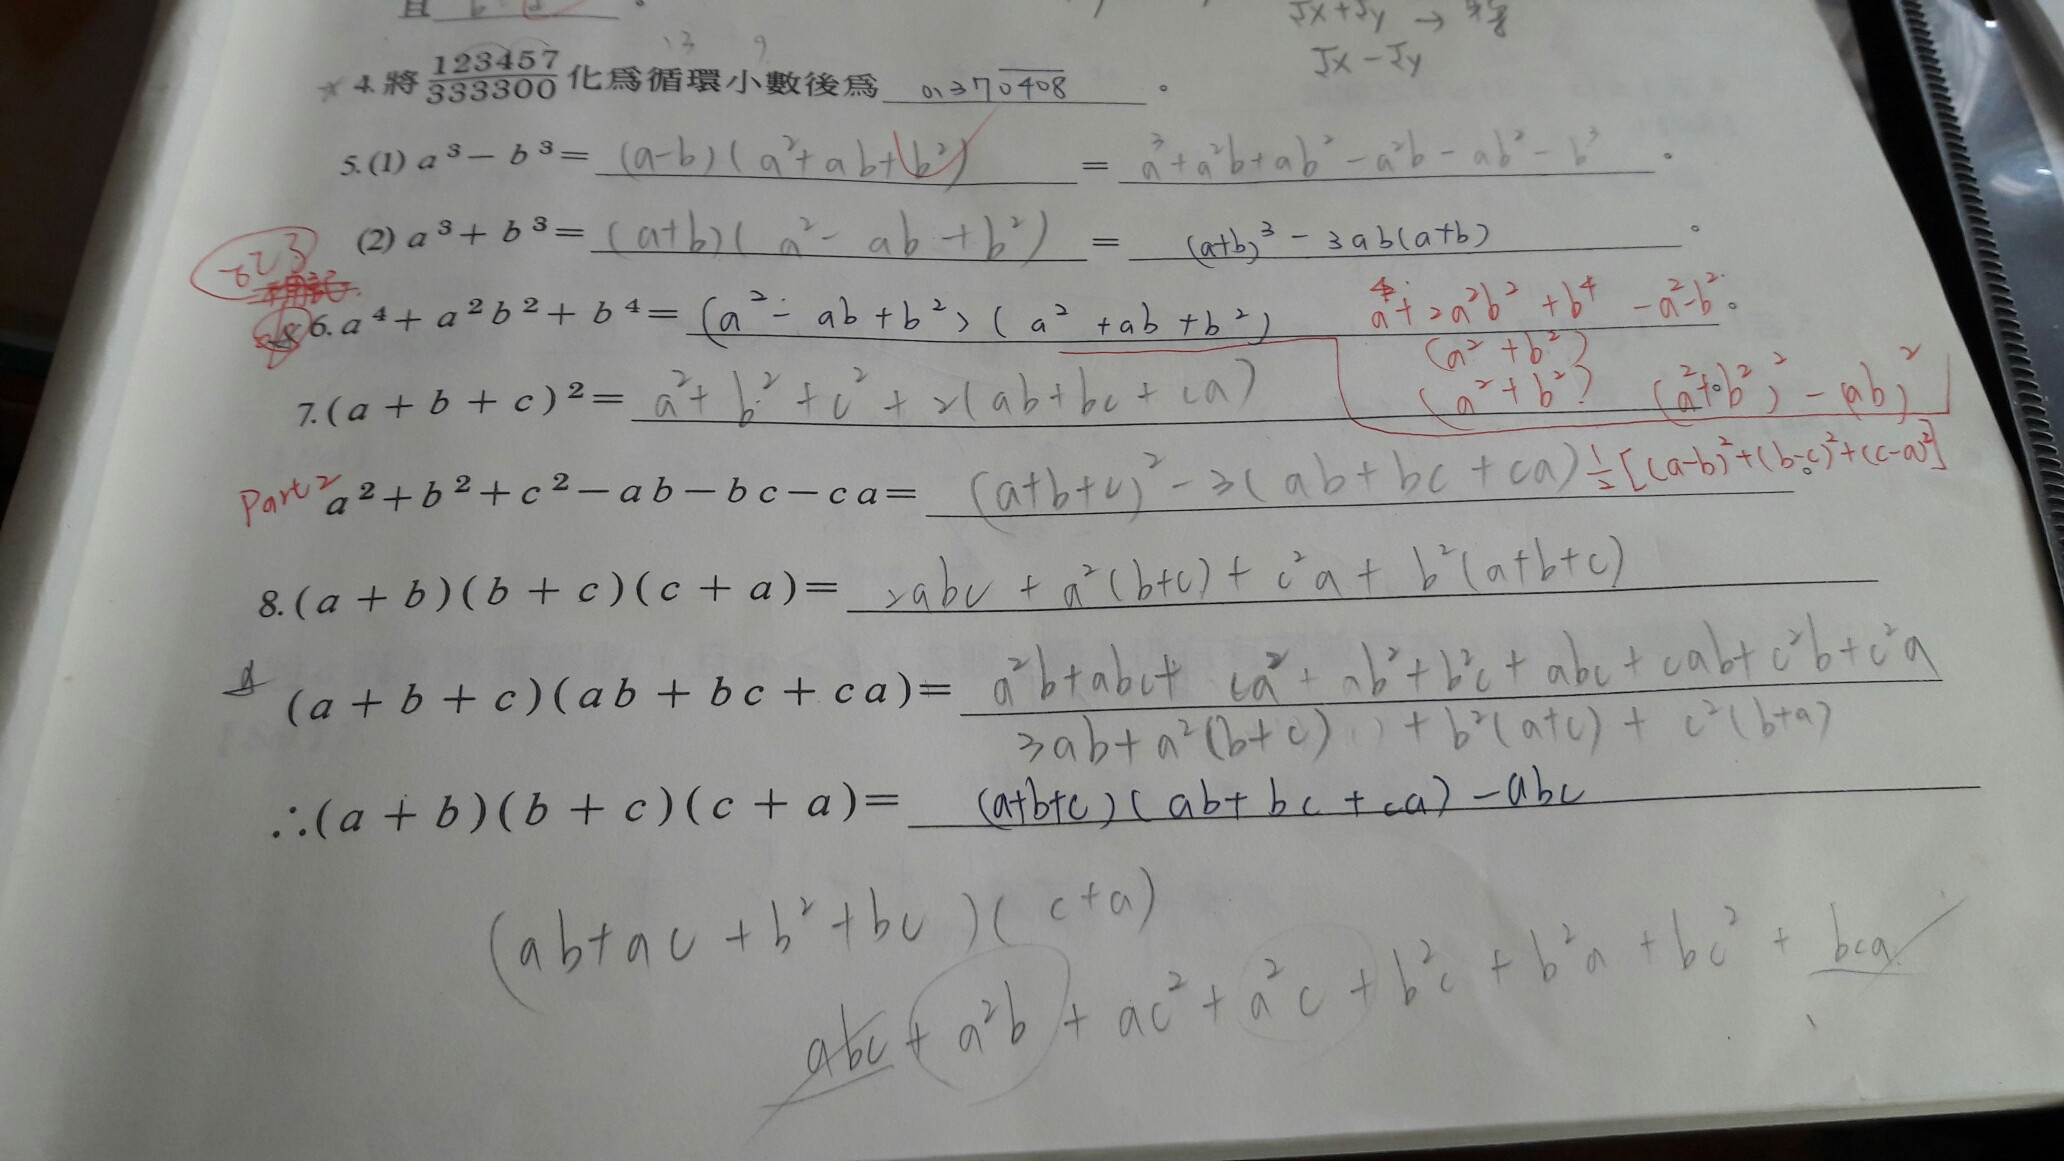 √x+√y →
√x-√y
13 9
4.將 123457/333300 化爲循環小數後爲 0.370408 。
5.(1) a³-b³= (a-b)(a²+ab+b²) = a³+a²b+ab²-a²b-ab²-b³ 。
(2) a³+b³= (a+b)(a²-ab+b²) = (a+b)³-3ab(a+b) 。
6.a⁴+a²b²+b⁴= (a²-ab+b²)(a²+ab+b²) a⁴+2a²b²+b⁴-a²-b² 。
(a²+b²)
(a²+b²) (a²+b²)²-(ab)²
7.(a+b+c)²= a²+b²+c²+2(ab+bc+ca) 。
Part2 a²+b²+c²-ab-bc-ca= (a+b+c)²-3(ab+bc+ca) 1/2[(a-b)²+(b-c)²+(c-a)²] 。
8.(a+b)(b+c)(c+a)= 2abc+a²(b+c)+c²a+b²(a+b+c)
(a+b+c)(ab+bc+ca)= a²b+abc+ca²+ab²+b²c+abc+cab+c²b+c²a
3ab+a²(b+c)+b²(a+c)+c²(b+a)
∴(a+b)(b+c)(c+a)= (a+b+c)(ab+bc+ca)-abc
(ab+ac+b²+bc)(c+a)
abc+a²b+ac²+a²c+b²c+b²a+bc²+bca